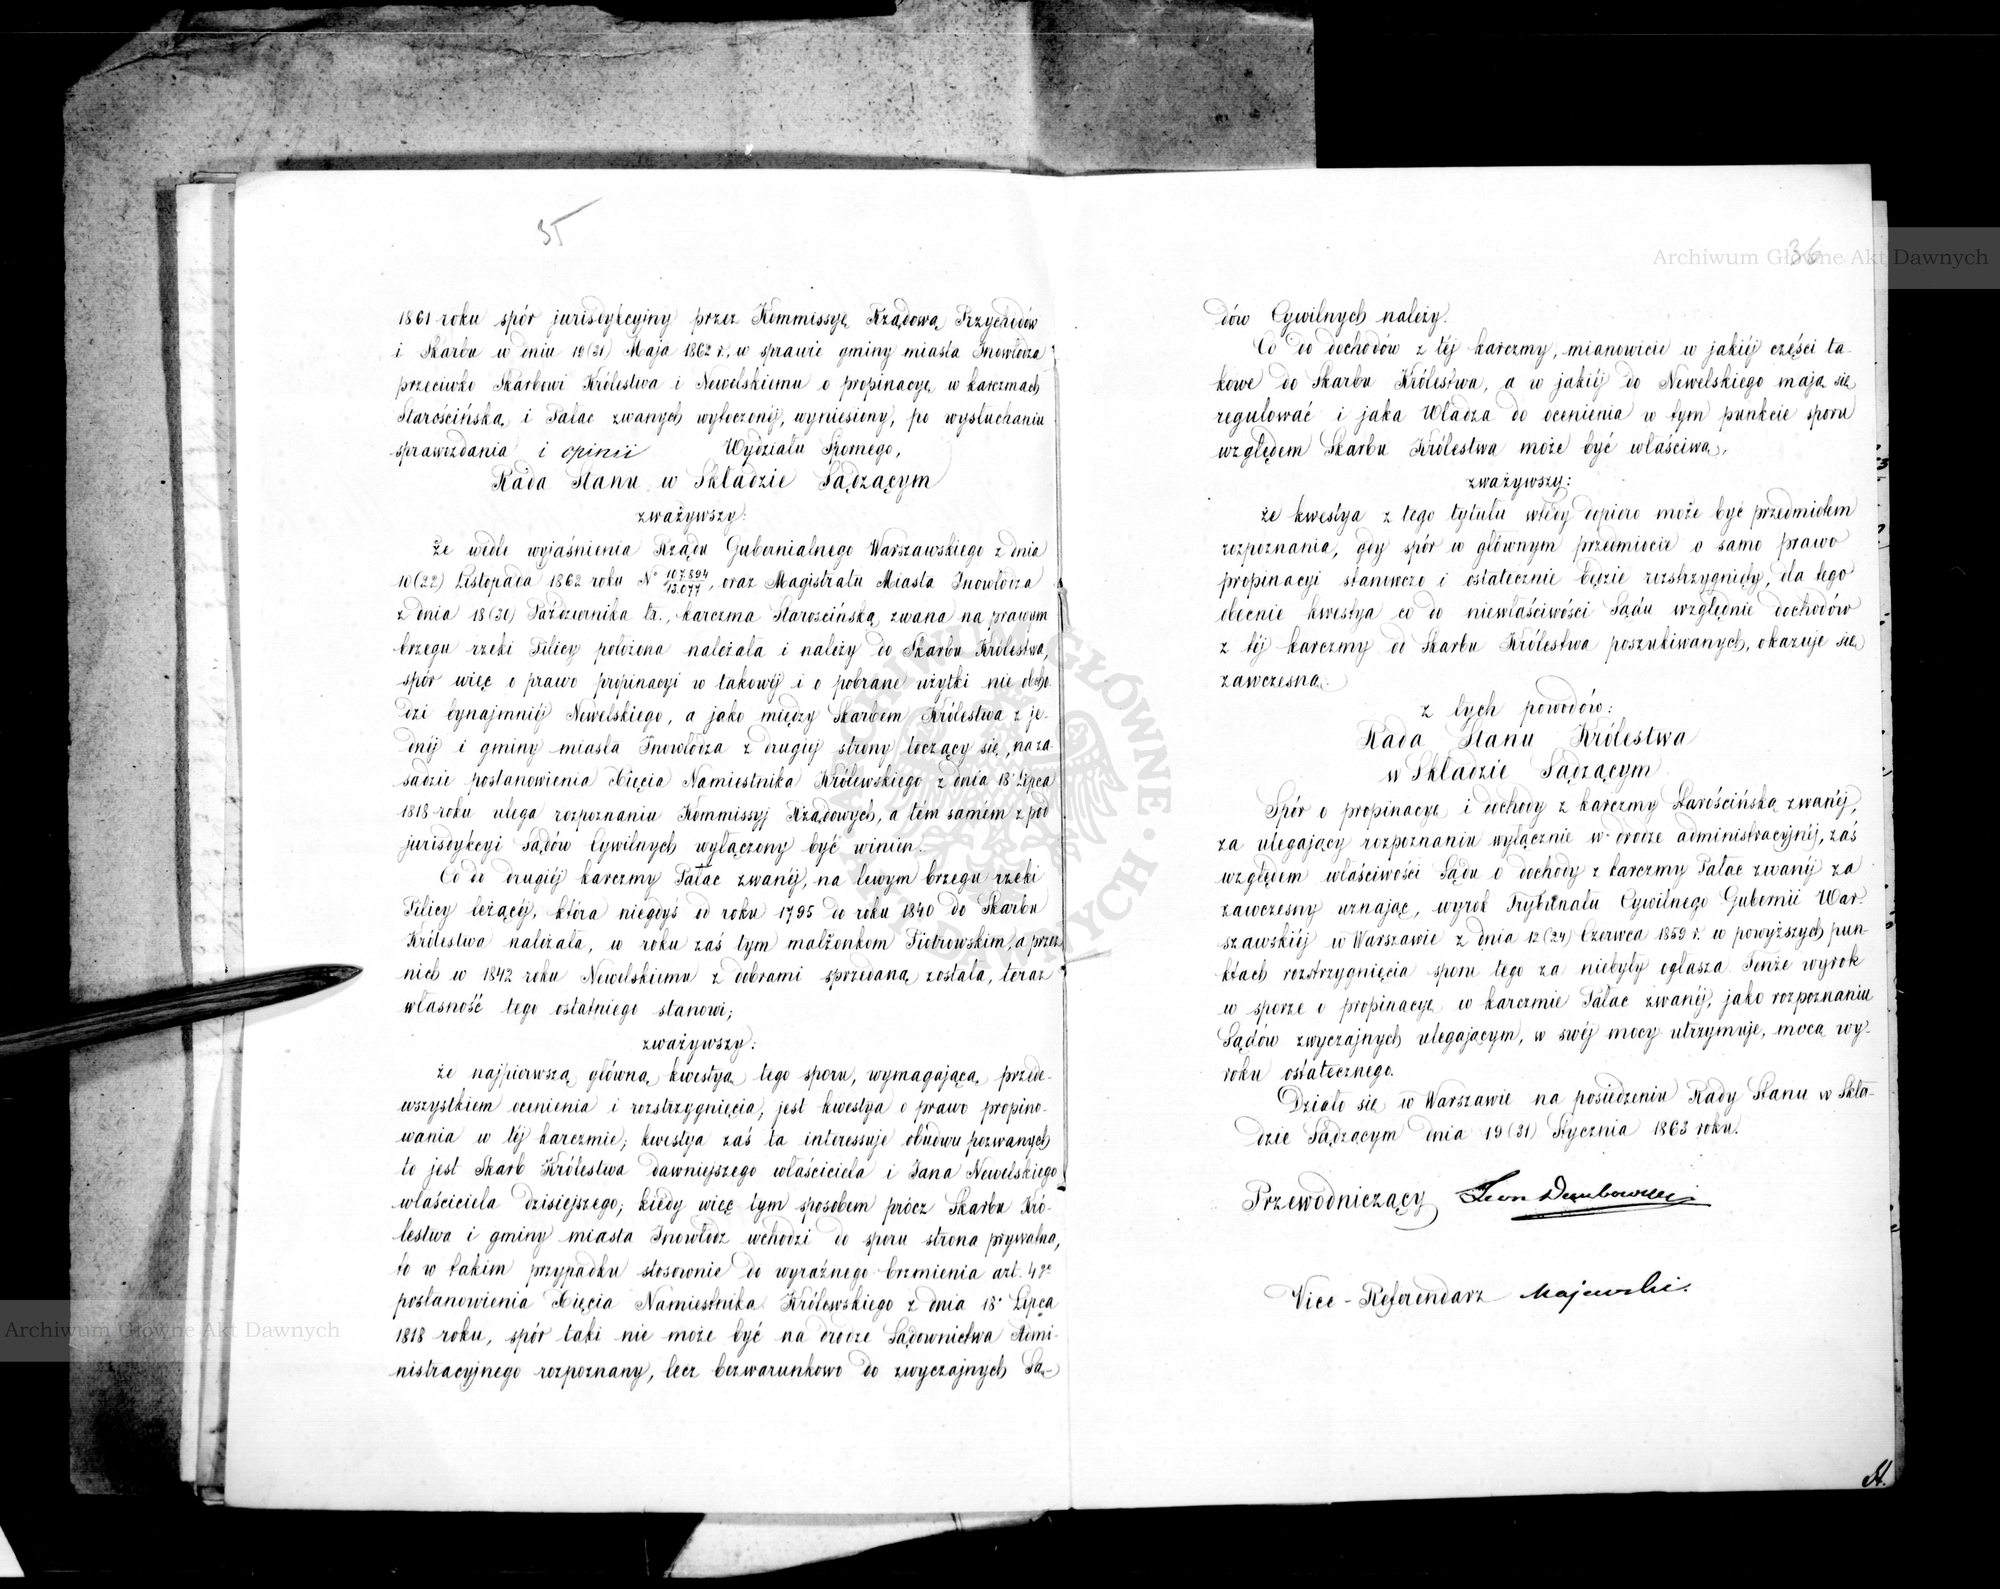 35
1861 roku spór jurisdykcyjny przez Kommissyę Rządową Przychodów
i Skarbu w dniu 19 (31) Maja 1862 r., w sprawie gminy miasta Inowłodza
przeciwko Skarbowi Królestwa i Newelskiemu o propinacyę w karczmach
Starościńską i Pałac zwanych wytoczonéj, wyniesiony, po wysłuchaniu
sprawozdania i opinii Wydziału Spornego,
Rada Stanu w Składzie Sądzącym
zważywszy:
że wedle wyjaśnienia Rządu Gubernialnego Warszawskiego z dnia
10 (22) Listopada 1862 roku No 107.894/13.077, oraz Magistratu Miasta Inowłodza
z dnia 18 (30) Października t.r., karczma Starościńską zwana na prawym
brzegu rzeki Pilicy położona należała i należy do Skarbu Królestwa,
spór więc o prawo propinacyi w takowéj i o pobrane użytki nie obcho-
dzi bynajmniéj Newelskiego, a jako między Skarbem Królestwa z je-
dnéj i gminy miasta Inowłodza z drugiej strony toczący się, na za-
sadzie postanowienia Xięcia Namiestnika Królewskiego z dnia 18 Lipca
1818 roku ulega rozpoznaniu Kommissyj Rządowych, a tém samém z pod
jurisdykcyi Sądów Cywilnych wyłączony być winien.
Co do drugiéj karczmy Pałac zwanéj, na lewym brzegu rzeki
Pilicy leżącéj, która niegdyś od roku 1795 do roku 1840 do Skarbu
Królestwa należała, w roku zaś tym małżonkom Piotrowskim, a przez
nich w 1842 roku Newelskiemu z dobrami sprzedaną została, teraz
własność tego ostatniego stanowi;
zważywszy:
że najpierwszą główną kwestyą tego sporu, wymagającą przede-
wszystkiem ocenienia i rozstrzygnięcia, jest kwestya o prawo propino-
wania w téj karczmie; kwestya zaś ta interessuje obudwu pozwanych
to jest Skarb Królestwa dawniejszego właściciela i Jana Newelskiego
właściciela dzisiejszego; kiedy więc tym sposobem prócz Skarbu Kró-
lestwa i gminy miasta Inowłodz wchodzi do sporu strona prywatna,
to w takim przypadku stosownie do wyraźnego brzmienia art. 4go
postanowienia Xięcia Namiestnika Królewskiego z dnia 18 Lipca
1818 roku, spór taki nie może być na drodze Sądownictwa Admi-
nistracyjnego rozpoznany, lecz bezwarunkowo do zwyczajnych Są-
36
dów Cywilnych należy.
Co do dochodów z téj karczmy, mianowicie w jakiéj części ta-
kowe do Skarbu Królestwa, a w jakiéj do Newelskiego mają się
regulować i jaka Władza do ocenienia w tym punkcie sporu
względem Skarbu Królestwa może być właściwą,
zważywszy:
że kwestya z tego tytułu wtedy dopiero może być przedmiotem
rozpoznania, gdy spór w głównym przedmiocie o samo prawo
propinacyi stanowczo i ostatecznie będzie rozstrzygnięty, dla tego
obecnie kwestya co do niewłaściwości Sądu względnie dochodów
z téj karczmy od Skarbu Królestwa poszukiwanych, okazuje się
zawczesną.
z tych powodów:
Rada Stanu Królestwa
w Składzie Sądzącym
Spór o propinacyę i dochody z karczmy Starościńską zwanéj,
za ulegający rozpoznaniu wyłącznie w drodze administracyjnéj, zaś
względem właściwości Sądu o dochody z karczmy Pałac zwanéj za
zawczesny uznając, wyrok Trybunału Cywilnego Gubernii War-
szawskiéj w Warszawie z dnia 12 (24) Czerwca 1859 r. w powyższych pun-
ktach rozstrzygnięcia sporu tego za niebyły ogłasza. Tenże wyrok
w sporze o propinacyę w karczmie Pałac zwanéj, jako rozpoznaniu
Sądów zwyczajnych ulegającym, w swéj mocy utrzymuje, mocą wy-
roku ostatecznego.
Działo się w Warszawie na posiedzeniu Rady Stanu w Skła-
dzie Sądzącym dnia 19 (31) Stycznia 1863 roku.
Przewodniczący Leon Dembowski
Vice-Referendarz Majewski.
Archiwum Główne Akt Dawnych
Archiwum Główne Akt Dawnych